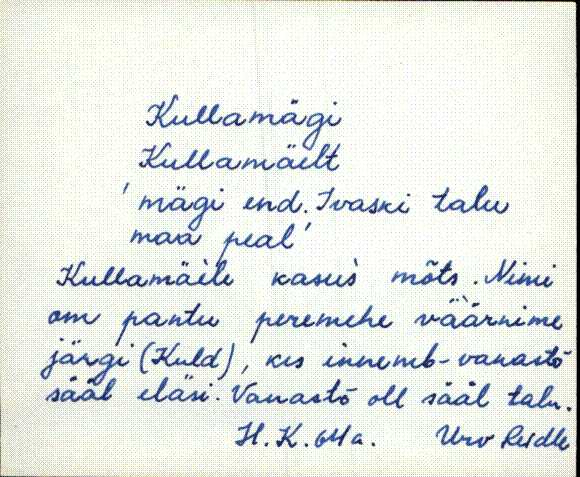 Kullamägi
Kullamäelt
'mägi end. Ivaski talu
maa peal'
Kullamäele kasus mõts. Nimi
om pantu peremehe väärnime
järgi (Kuld), kes innemb-vanastõ
sääl eläsi. Vanastõ oll sääl talu.
H. K. 64a. Urv